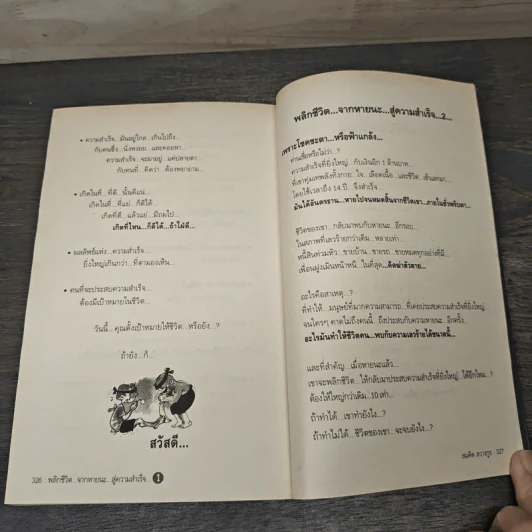 • ความสำเร็จ...มันอยู่ไกล...เกินไปถึง...
กับคนซึ่ง...นั่งหงอย...และคอยหา...
ความสำเร็จ...จะมาอยู่...แค่ปลายตา...
กับคนที่...คิดว่า...ต้องพยายาม...
• เกิดในที่...ที่ดี...นั้นดีแน่...
เกิดในที่...ที่แย่...ก็ดีได้...
เกิดที่ดี...แล้วแย่...มีถมไป...
เกิดที่ไหน...ก็ดีได้...ถ้าใฝ่ดี...
• ผลลัพธ์แห่ง...ความสำเร็จ...
ยิ่งใหญ่เกินกว่า...ที่ตามองเห็น...
• คนที่จะประสบความสำเร็จ...
ต้องมีเป้าหมายในชีวิต...
วันนี้...คุณตั้งเป้าหมายให้ชีวิต...หรือยัง...?
ถ้ายัง...ก็...
สวัสดี...
326 : พลิกชีวิต...จากหายนะ...สู่ความสำเร็จ... 1
พลิกชีวิต...จากหายนะ...สู่ความสำเร็จ...2...
เพราะโชคชะตา...หรือฟ้าแกล้ง...
ท่านเชื่อหรือไม่ว่า...?
ความสำเร็จที่ยิ่งใหญ่...กับเงินอีก 1 ล้านบาท...
ที่เขาทุ่มเทพลังทั้งกาย...ใจ...เลือดเนื้อ...และชีวิต...เข้าแลกมา...
โดยใช้เวลาถึง 14 ปี...จึงสำเร็จ...
มันได้อันตรธาน...หายไปจนหมดสิ้นจากชีวิตเขา...ภายในชั่วพริบตา...
ชีวิตของเขา...กลับมาพบกับหายนะ...อีกรอบ...
ในสภาพที่เลวร้ายกว่าเดิม...หลายเท่า...
หนี้สินท่วมหัว...ขายบ้าน...ขายรถ...ขายหมดทุกอย่างที่มี
เพื่อนฝูงเมินหน้าหนี...ในที่สุด...คิดฆ่าตัวตาย...
อะไรคือสาเหตุ...?
ที่ทำให้...มนุษย์ที่มากความสามารถ...ที่เคยประสบความสำเร็จที่ยิ่งใหญ่...
จนใครๆ คาดไม่ถึงคนนี้...ถึงประสบกับความหายนะ...อีกครั้ง...
อะไรมันทำให้ชีวิตคน...พบกับความเลวร้ายได้ขนาดนี้...
และที่สำคัญ...เมื่อหายนะแล้ว...
เขาจะพลิกชีวิต...ให้กลับมาประสบความสำเร็จที่ยิ่งใหญ่...ได้อีกไหม...?
ต้องให้ใหญ่กว่าเดิม...10 เท่า...
ถ้าทำได้...เขาทำยังไง...?
ถ้าทำไม่ได้...ชีวิตของเขา...จะจบยังไง...?
สมคิด ลวางกูร : 327